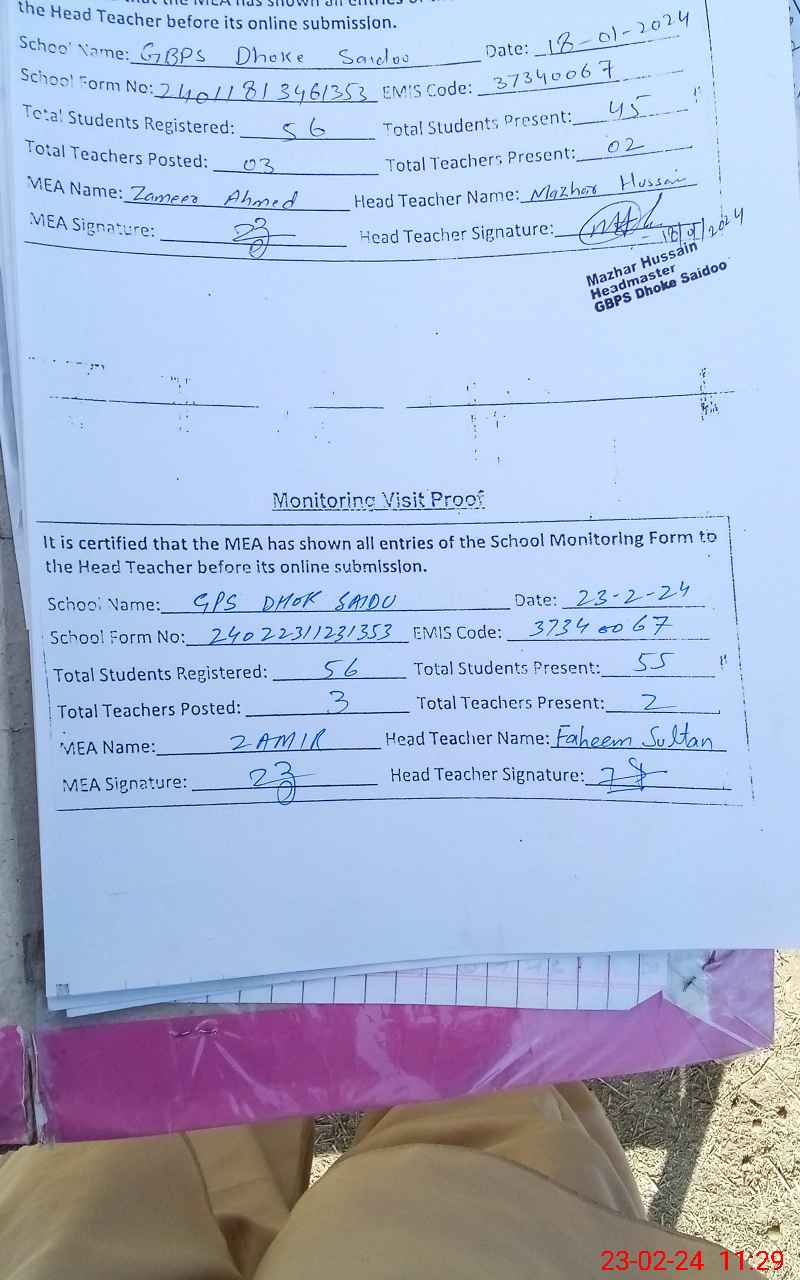 the Head Teacher before its online submission.
School Name: GBPS Dhoke Saidoo Date: 18-01-2024
School Form No: 24011813461353 EMIS Code: 37340067
Total Students Registered: 56 Total Students Present: 45
Total Teachers Posted: 03 Total Teachers Present: 02
MEA Name: Zameer Ahmed Head Teacher Name: Mazhar Hussain
MEA Signature: Head Teacher Signature: 18/01/2024
Mazhar Hussain
Headmaster
GBPS Dhoke Saidoo
Monitoring Visit Proof
It is certified that the MEA has shown all entries of the School Monitoring Form to
the Head Teacher before its online submission.
School Name: GPS DHOK SAIDU Date: 23-2-24
School Form No: 24022311231353 EMIS Code: 37340067
Total Students Registered: 56 Total Students Present: 55
Total Teachers Posted: 3 Total Teachers Present: 2
MEA Name: ZAMIR Head Teacher Name: Faheem Sultan
MEA Signature: Head Teacher Signature:
23-02-24 11:29